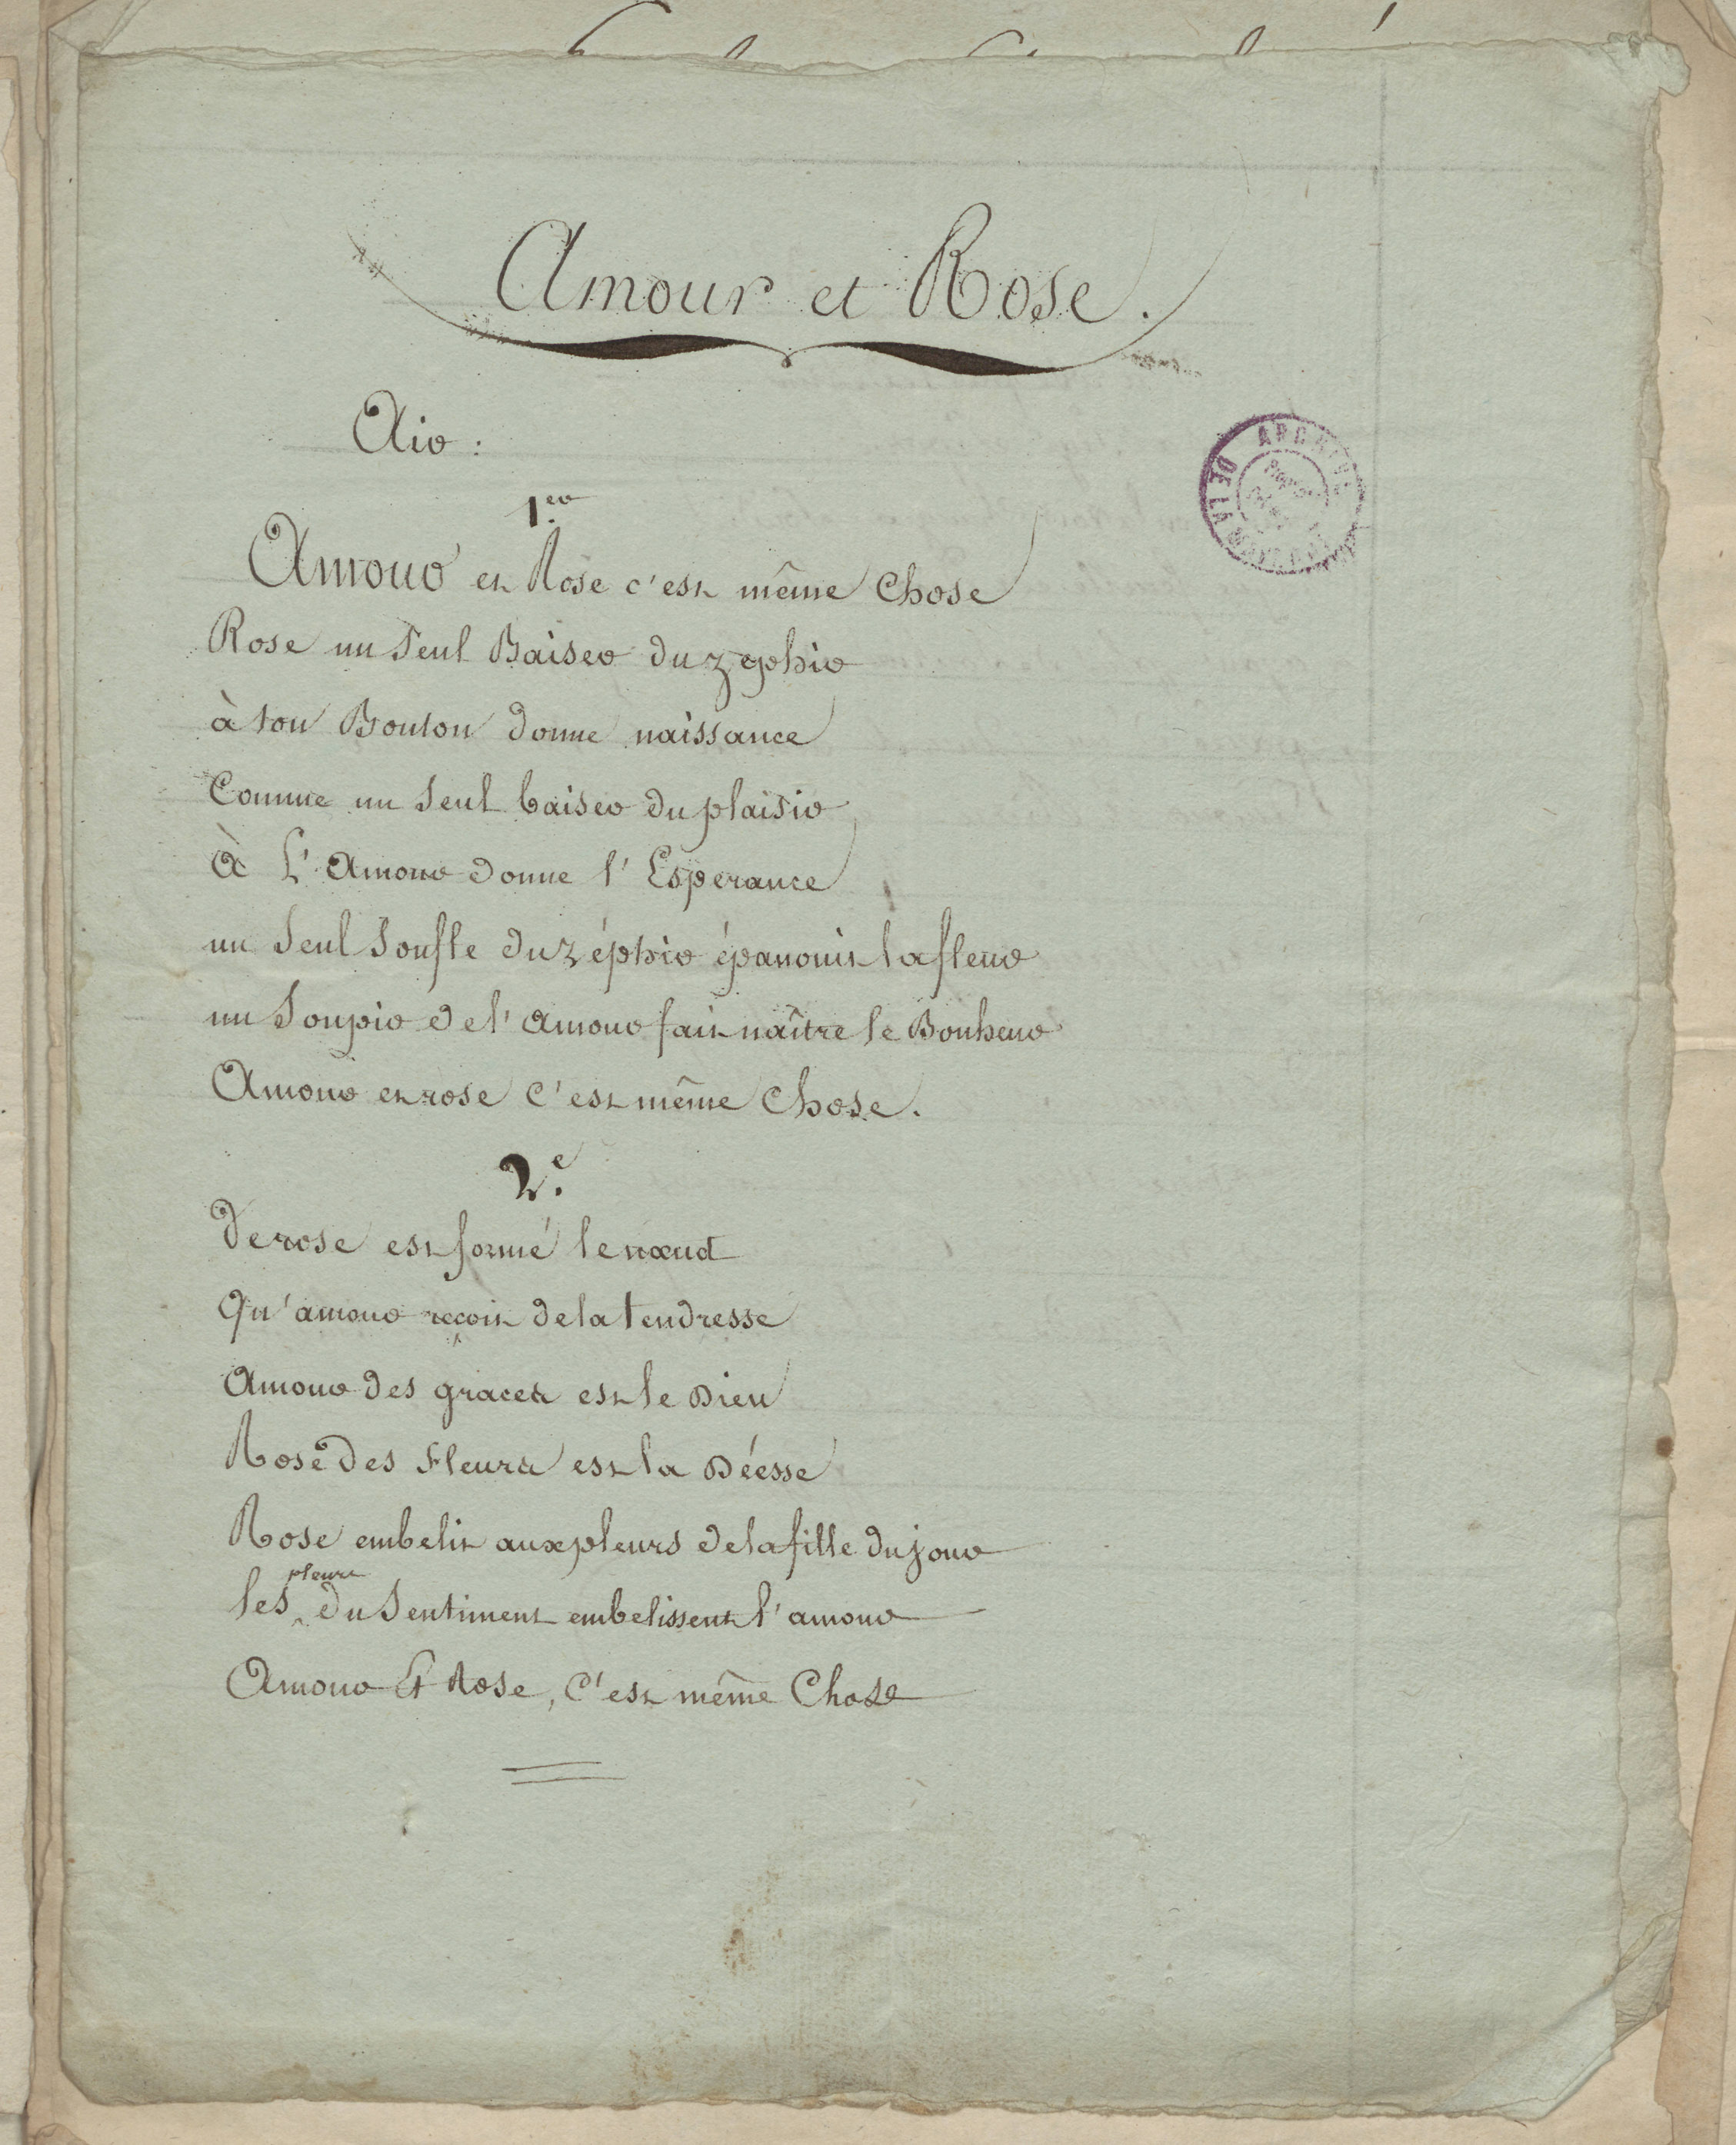 Amour et Rose.
Air :
1.er
Amour et Rose c'est même Chose
Rose un seul Baiser du zephir
à ton Bouton donne naissance
Comme un seul baiser du plaisir
à L'Amour donne l'Esperance
un seul soufle du zéphir épanouit la fleur
un soupir de l'amour fait naître le Bonheur
Amour et rose c'est même Chose.
2.e
De rose est formé le nœud
Qu'amour reçoit de la tendresse
Amour des graces est le Dieu
Rose des Fleurs est la Déesse
Rose embelit aux pleurs de la fille du jour
les pleurs du sentiment embelissent l'amour
Amour Et Rose, c'est même Chose